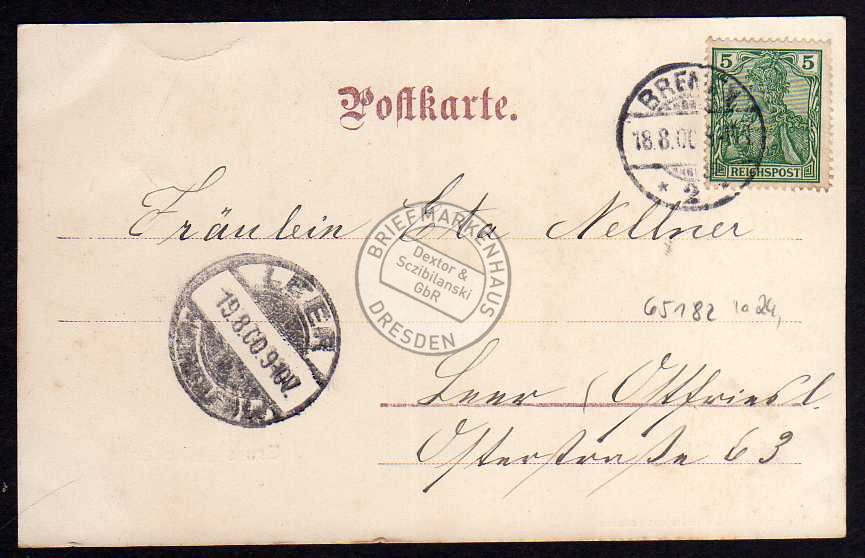 Postkarte.
5 5
REICHSPOST
BREMEN
18.8.00
* 2 *
Fräulein Eta Neltner
BRIEFMARKENHAUS
Dextor &
Sczibilanski
GbR
DRESDEN
LEER
19.8.00.9-10V.
65182
Leer (Ostfriesl.
Osterstraße 63